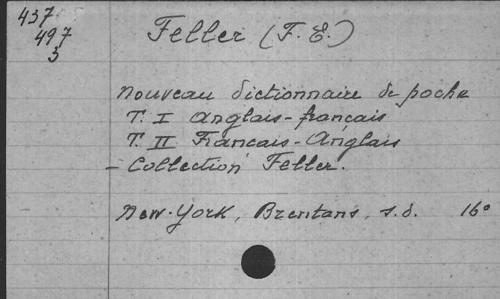 437
497
3
Feller (F. E.)
Nouveau dictionnaire de poche
T. I Anglais-francais
T. II Francais-Anglais
- Collection Feller.
New-York, Brentans, s.d. 16°